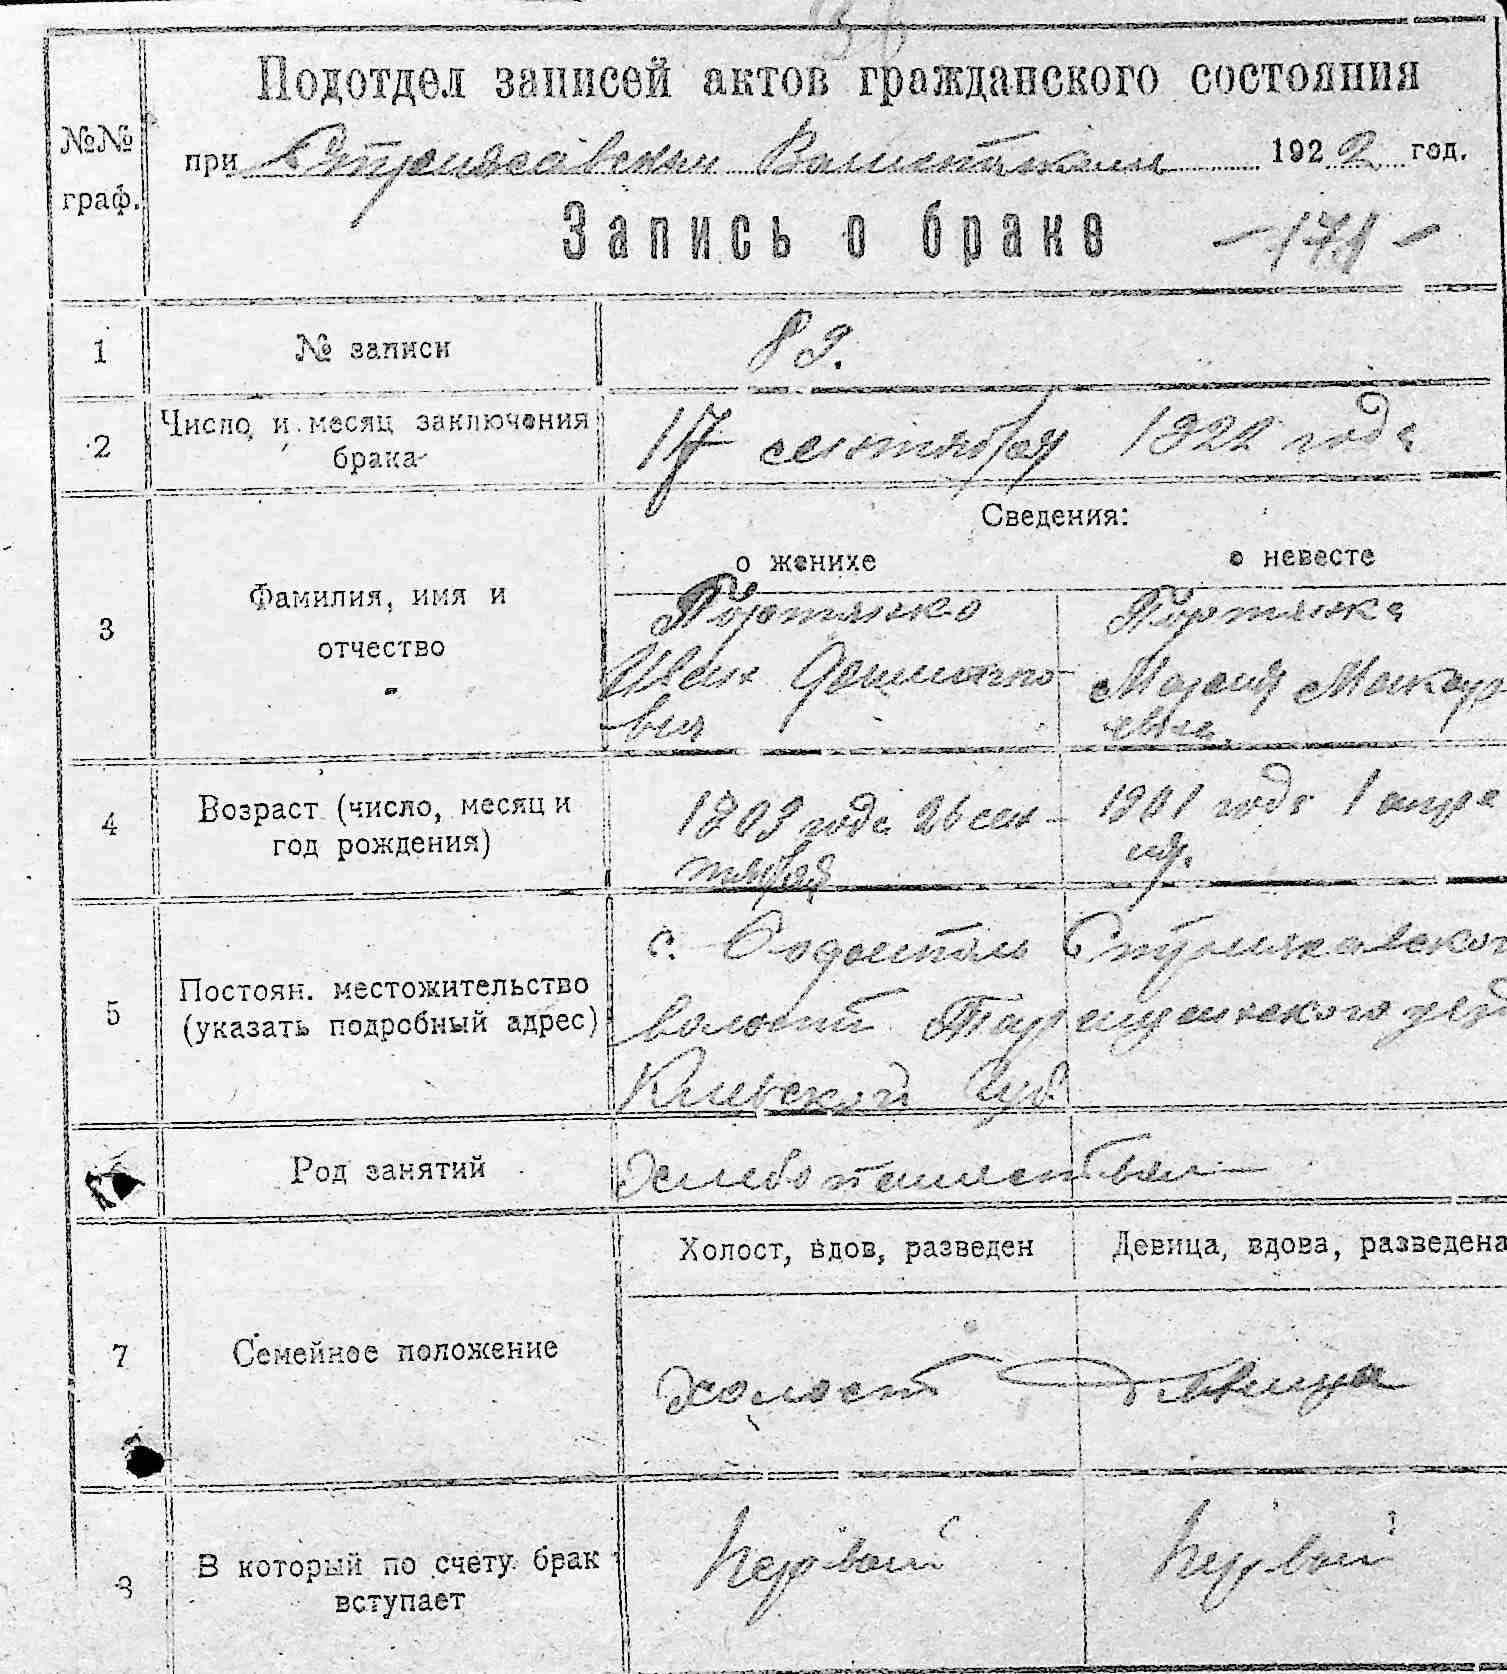 Подотдел записей актов гражданского состояния
№№ граф.
при Волисполкоме 1922 год.
Запись о браке
1 № записи 89.
2 Число и месяц заключения брака 17 сентября 1922 года
Сведения:
о женихе о невесте
3 Фамилия, имя и отчество
Портянко Портянка
Иван Мария Макар
вич евна
4 Возраст (число, месяц и год рождения)
1903 года 26 сен- 1901 года 1 апре
тября ля.
5 Постоян. местожительство (указать подробный адрес)
с.
волости Таращанского уезд
Киевской Губ
Род занятий Хлебопашество
Холост, вдов, разведен Девица, вдова, разведена
7 Семейное положение холост девица
8 В который по счету брак вступает Первый Первый